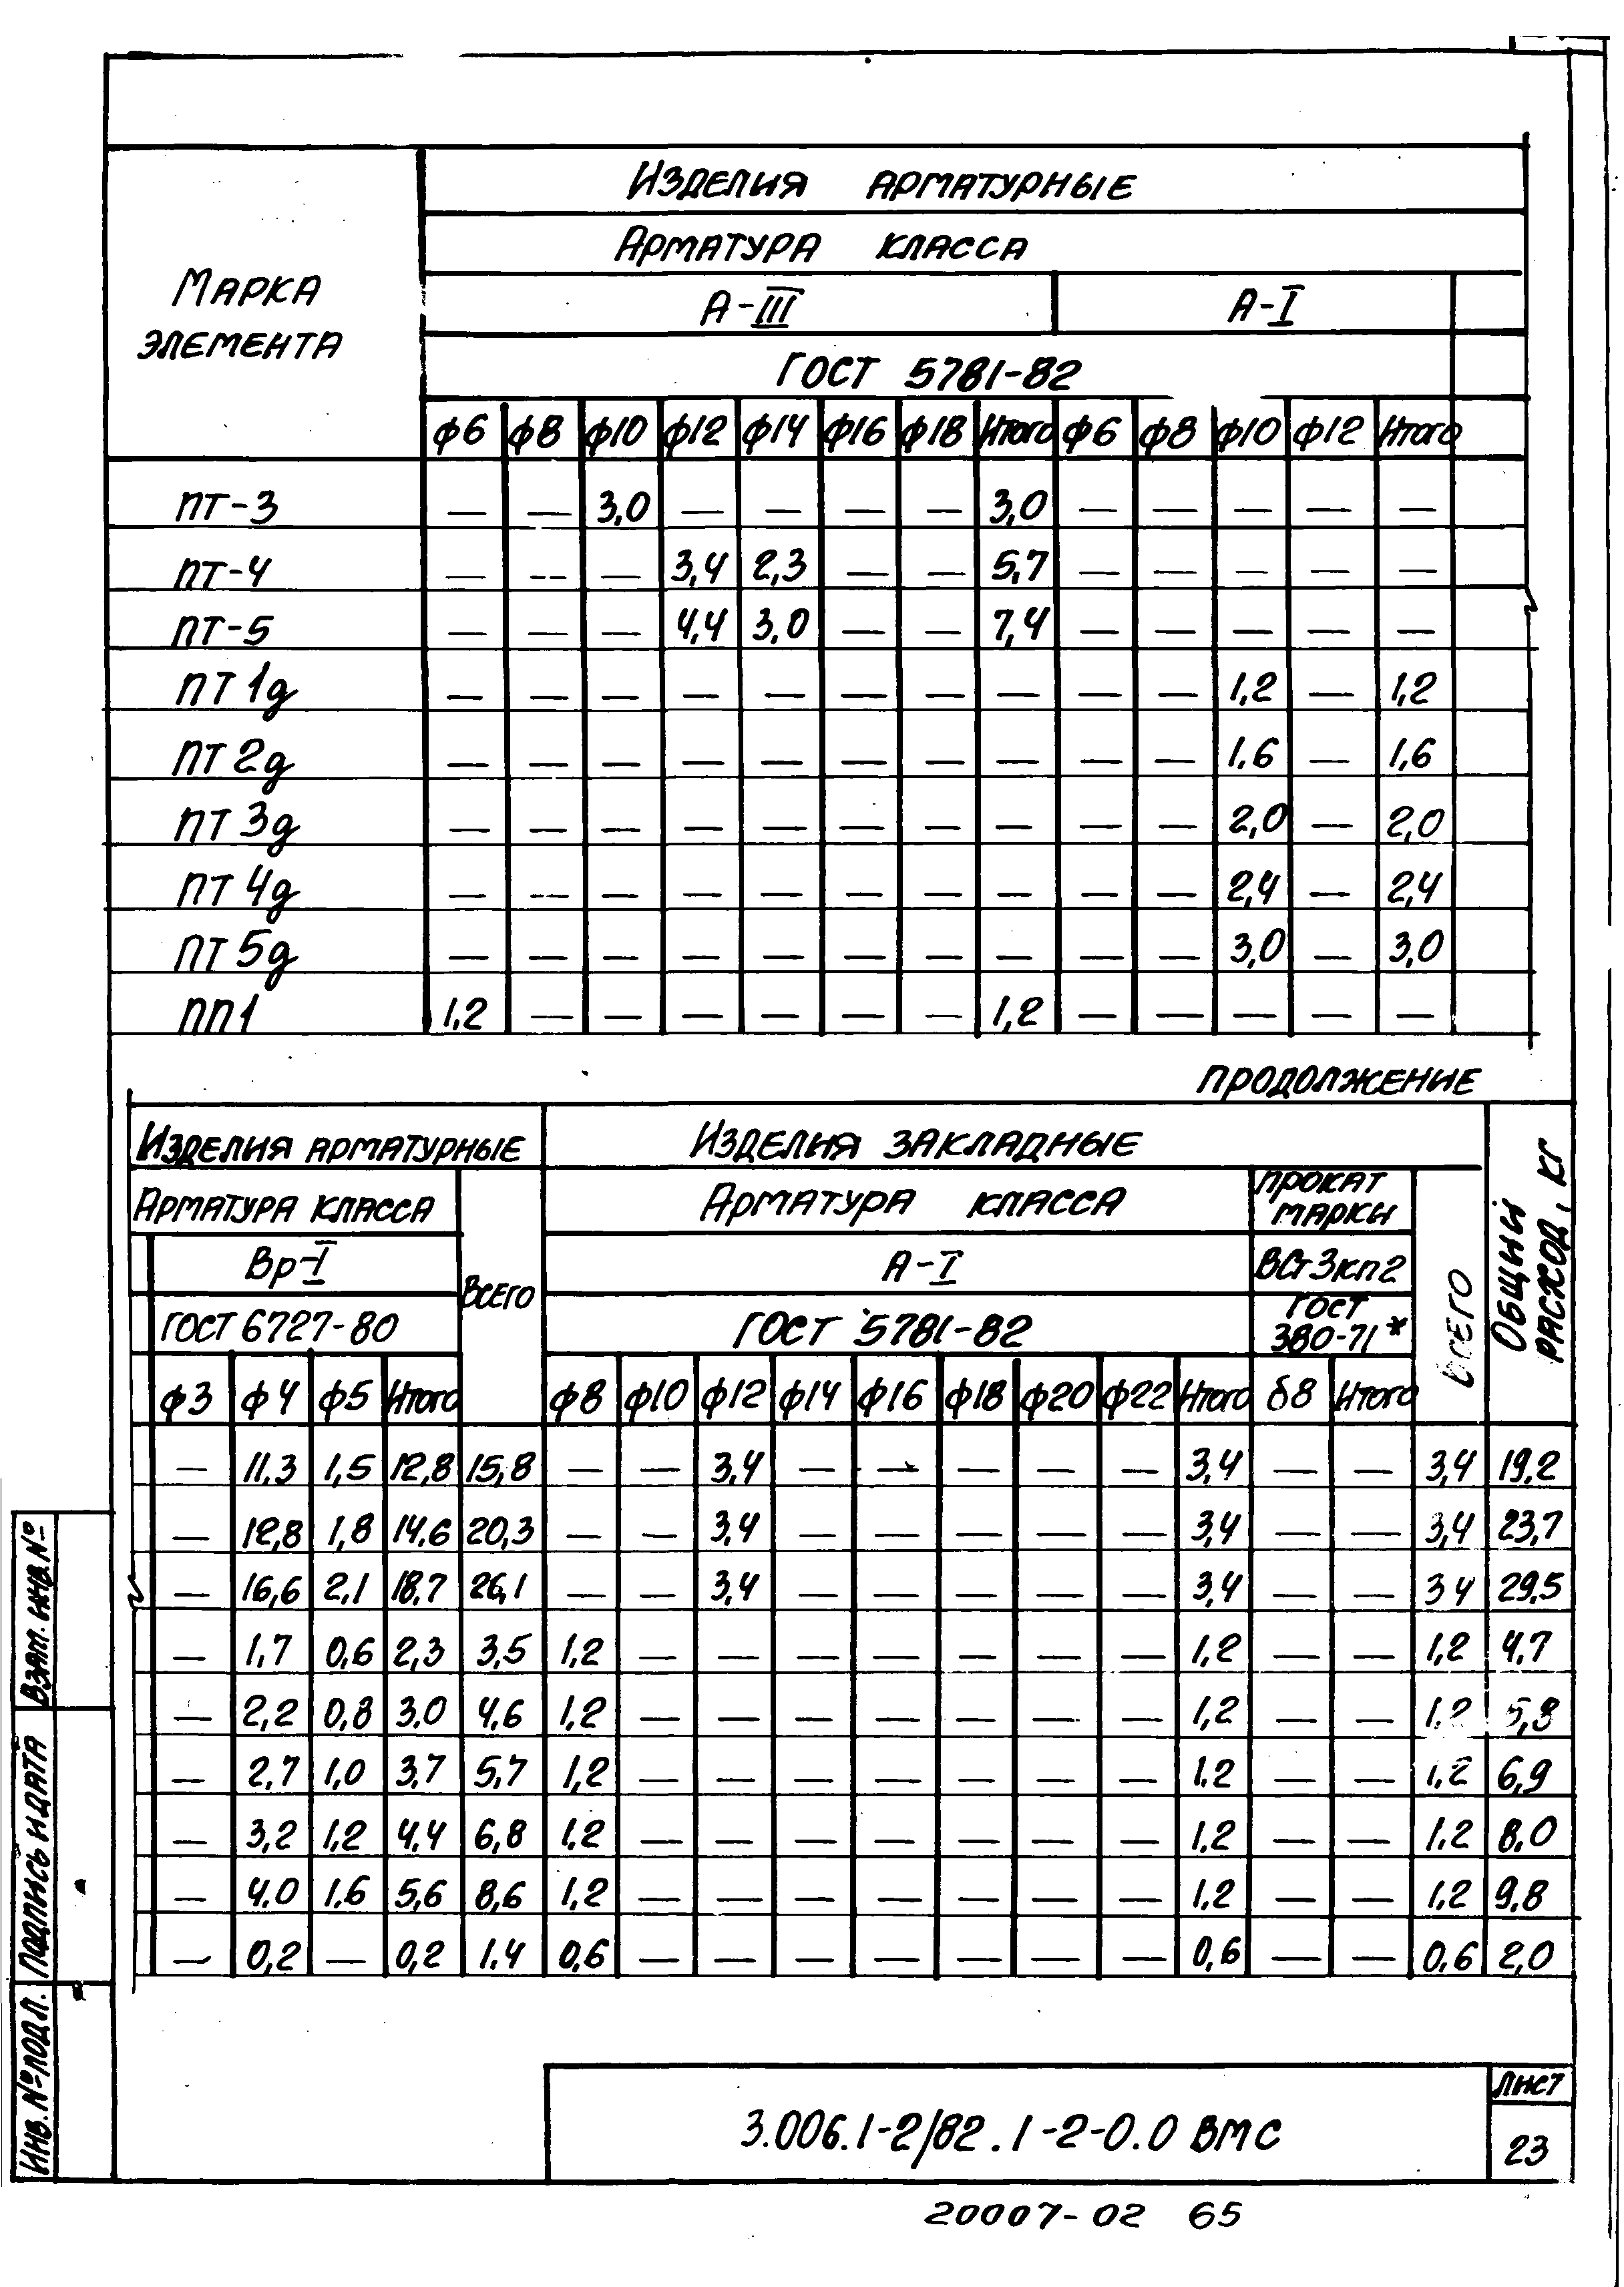 Марка элемента
Изделия арматурные
Арматура класса
А-III А-I
ГОСТ 5781-82
ф6 ф8 ф10 ф12 ф14 ф16 ф18 Итого ф6 ф8 ф10 ф12 Итого
ПТ-3 — — 3,0 — — — — 3,0 — — — — —
ПТ-4 — — — 3,4 2,3 — — 5,7 — — — — —
ПТ-5 — — — 4,4 3,0 — — 7,4 — — — — —
ПТ 1д — — — — — — — — — — 1,2 — 1,2
ПТ 2д — — — — — — — — — — 1,6 — 1,6
ПТ 3д — — — — — — — — — — 2,0 — 2,0
ПТ 4д — — — — — — — — — — 2,4 — 2,4
ПТ 5д — — — — — — — — — — 3,0 — 3,0
ПП1 1,2 — — — — — — 1,2 — — — — —
продолжение
Изделия арматурные Изделия закладные Общий расход, кг
Арматура класса Всего Арматура класса прокат марки Всего
Вр-I А-I ВСт3кп2
ГОСТ 6727-80 ГОСТ 5781-82 ГОСТ 380-71*
ф3 ф4 ф5 Итого ф8 ф10 ф12 ф14 ф16 ф18 ф20 ф22 Итого δ8 Итого
— 11,3 1,5 12,8 15,8 — — 3,4 — — — — — 3,4 — — 3,4 19,2
— 12,8 1,8 14,6 20,3 — — 3,4 — — — — — 3,4 — — 3,4 23,7
— 16,6 2,1 18,7 26,1 — — 3,4 — — — — — 3,4 — — 3 4 29,5
— 1,7 0,6 2,3 3,5 1,2 — — — — — — — 1,2 — — 1,2 4,7
— 2,2 0,8 3,0 4,6 1,2 — — — — — — — 1,2 — — 1,2 5,8
— 2,7 1,0 3,7 5,7 1,2 — — — — — — — 1,2 — — 1,2 6,9
— 3,2 1,2 4,4 6,8 1,2 — — — — — — — 1,2 — — 1,2 8,0
— 4,0 1,6 5,6 8,6 1,2 — — — — — — — 1,2 — — 1,2 9,8
— 0,2 — 0,2 1,4 0,6 — — — — — — — 0,6 — — 0,6 2,0
Взам. инв. №
Подпись и дата
Инв. № подл.
3.006.1-2/82.1-2-0.0 ВМС
Лист
23
20007-02 65